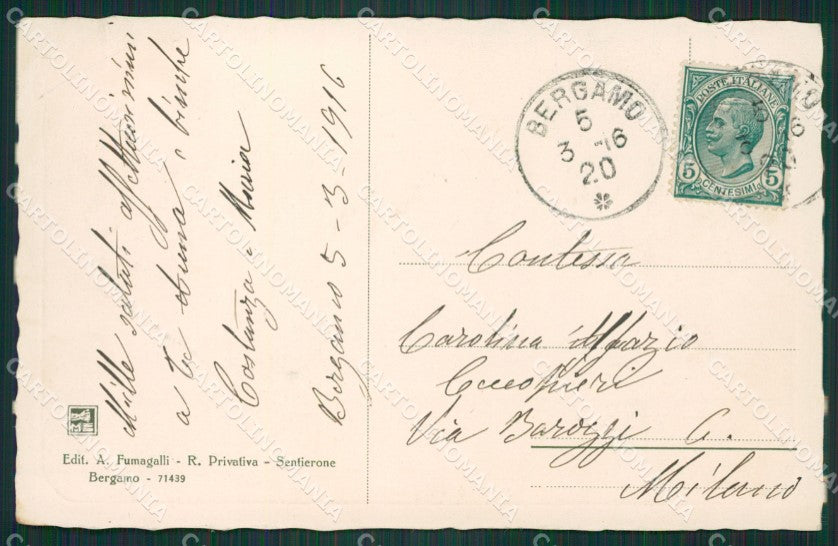 Mille saluti affettuosissimi
a te Emma e bimbe
Costanza e Maria
Bergamo 5-3-1916
Edit. A. Fumagalli - R. Privativa - Sentierone
Bergamo - 71439
BERGAMO
5
3 -16
20
POSTE ITALIANE
5 CENTESIMI 5
Contessa
Carolina
Via Barozzi 6.
Milano
CARTOLINOMANIA